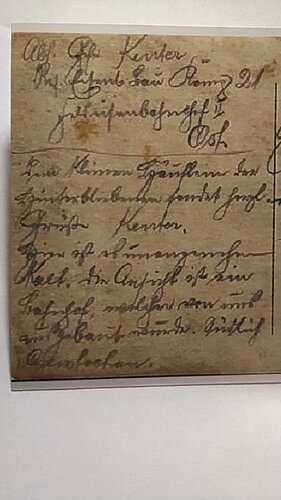 Abs. Gfr. Kenter,
Res. Eisenb. Bau Komp. 21
Feldeisenbahnchef II
Ost.
Dem kleinen Häuflein der
Hinterbliebenen sendet herzl.
Grüße Kenter.
Hier ist es unangenehm
kalt, die Ansicht ist ein
Bahnhof, welcher von uns
umgebaut wurde. Südlich